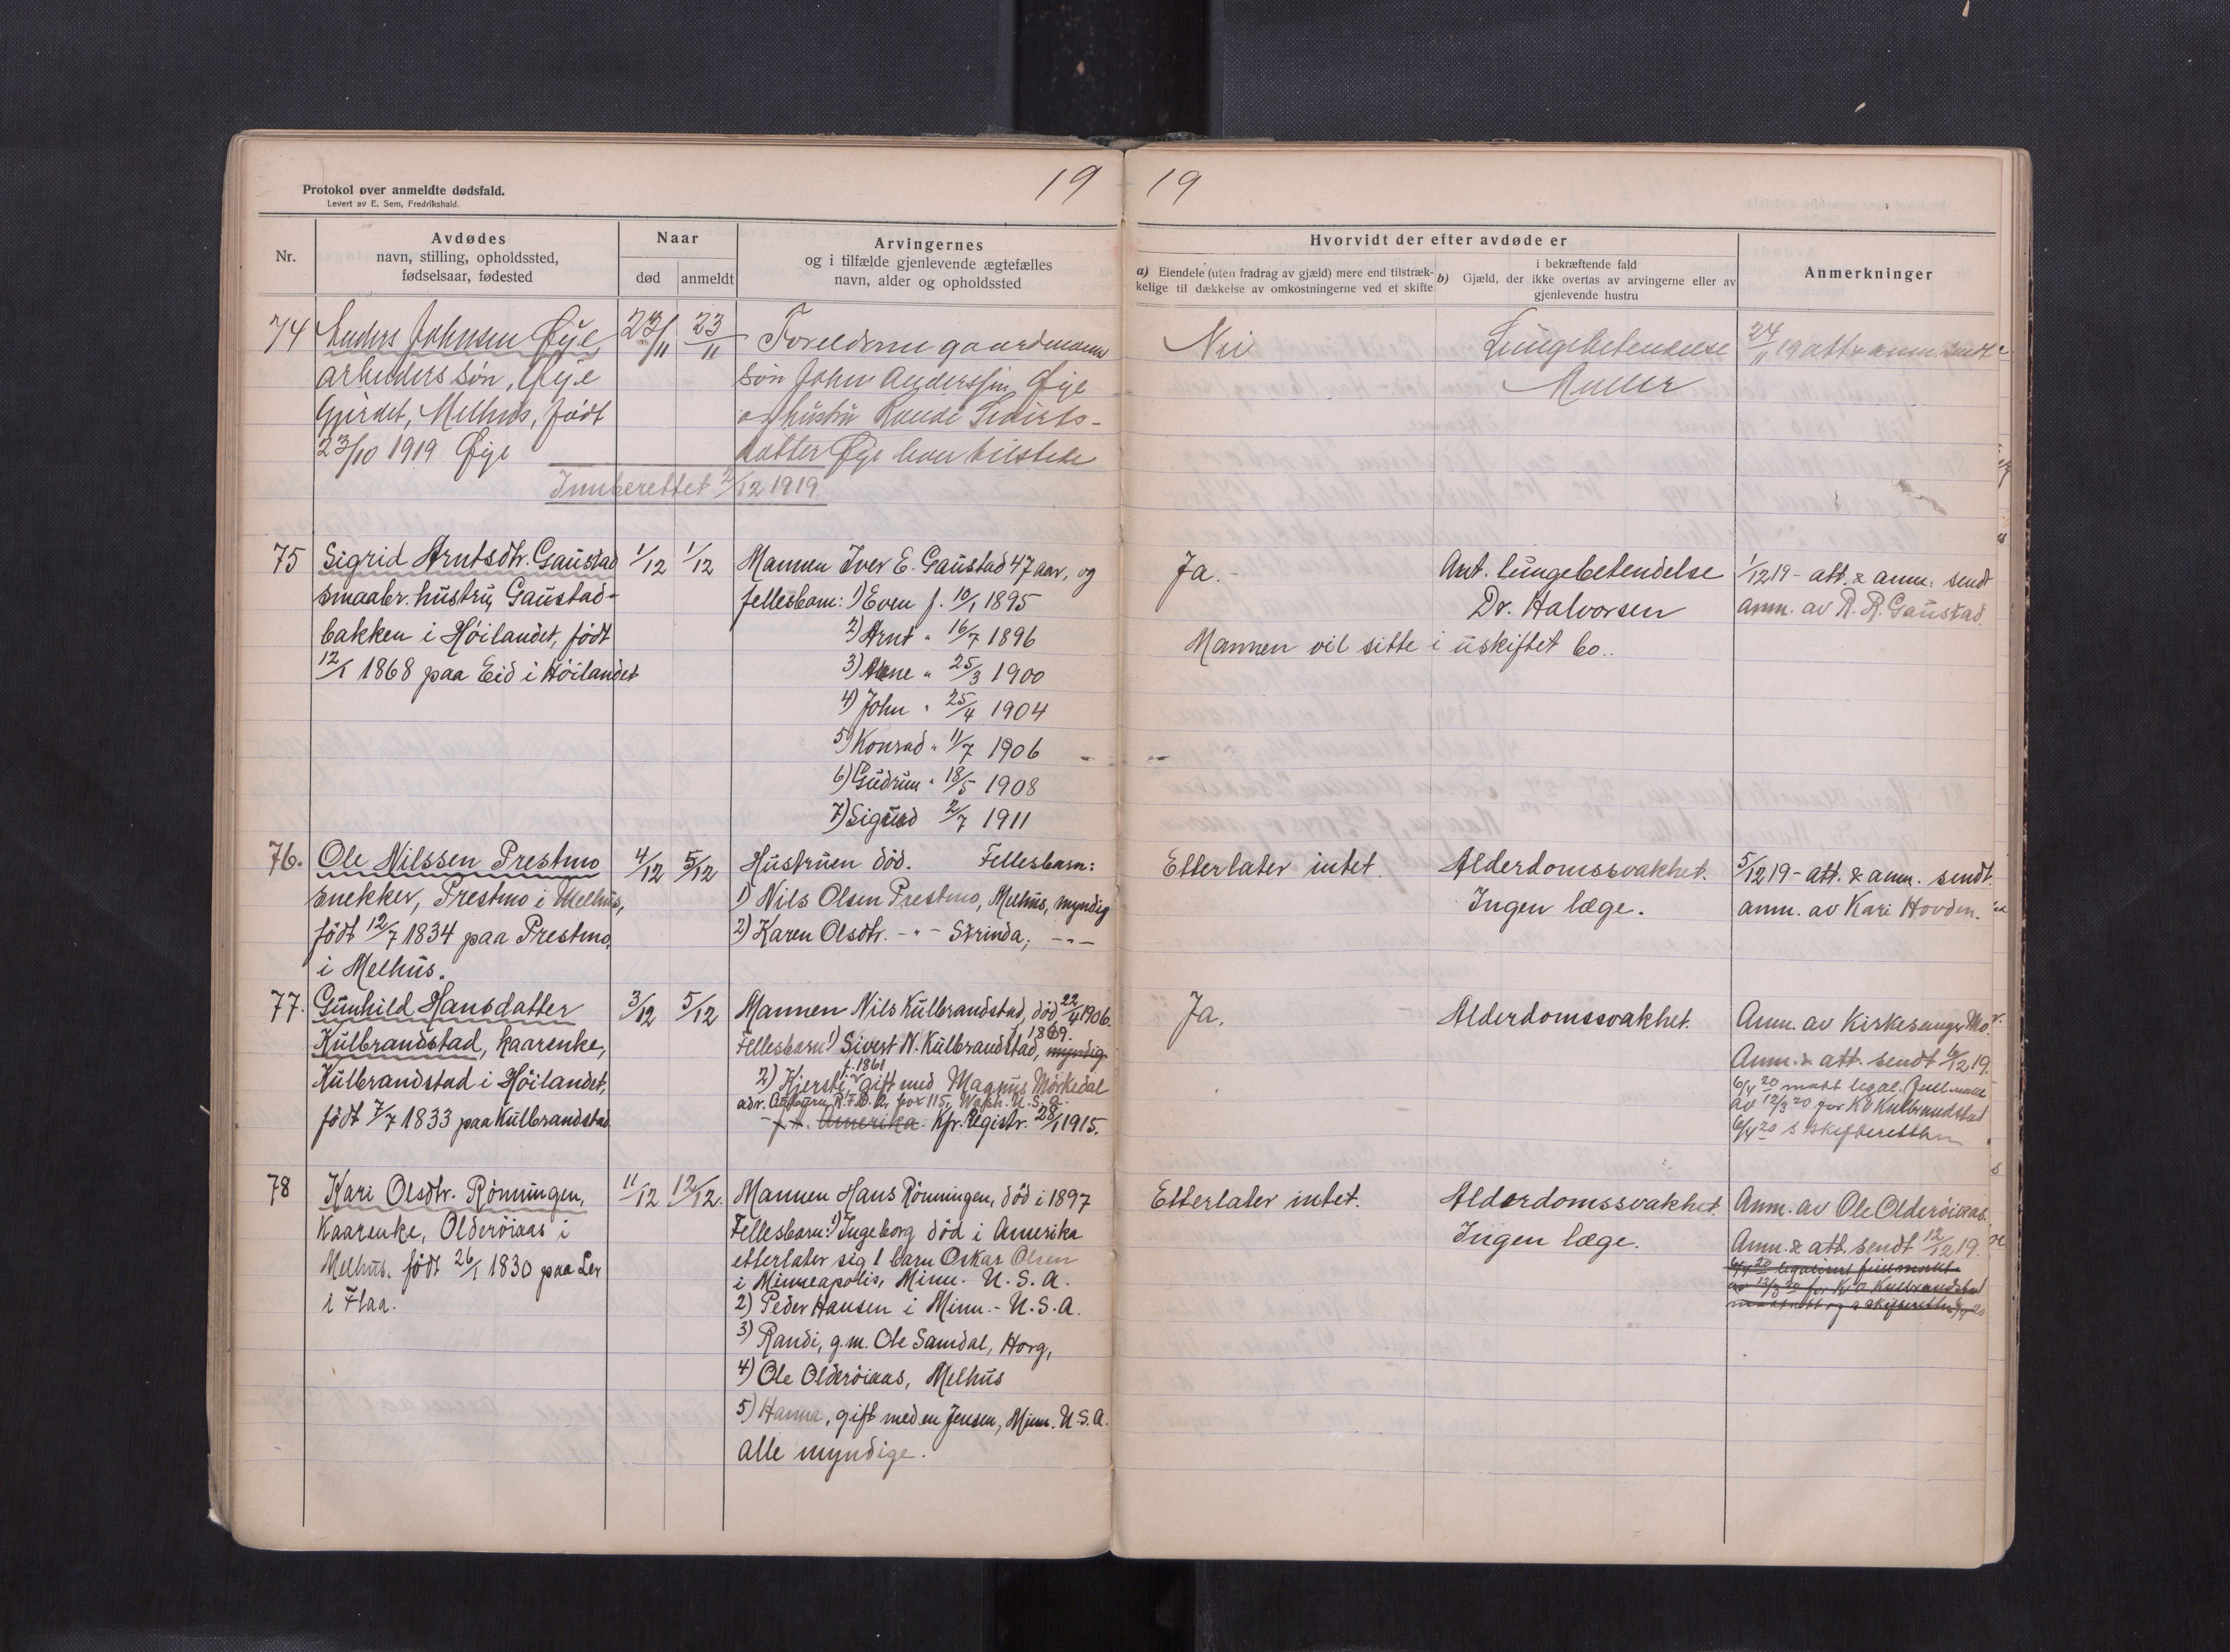 Protokol over anmeldte dødsfald.
Levert av E. Sem, Fredrikshald.
19
Nr.
Avdødes
navn, stilling, opholdssted,
fødselsaar, fødested
Naar
død
anmeldt
Arvingernes
og i tilfælde gjenlevende ægtefælles
navn, alder og opholdssted
74
Anders Johnsen Øye,
arbeiders søn, Øye
Gjerdet, Melhus, født
23/10 1919 Øye
23/11
23/11
Foreldrene gaardmanns
søn John Anderssen Øye
og hustru
datter Øye
Innberettet 2/12 1919
75
Sigrid Arntsdtr. Gaustad
smaabr. hustru, Gaustad-
bakken i Höilandet, født
12/1 1868 paa Eid i Höilandet
1/12
1/12
Mannen Iver E. Gaustad 47 aar, og
fellesbarn: 1) Even f. 10/1 1895
2) Arnt " 16/7 1896
3) Arne " 25/3 1900
4) John " 25/4 1904
5) Konrad " 11/7 1906
6) Gudrun " 18/5 1908
7) Sigurd 2/7 1911
76.
Ole Nilssen Prestmo
snekker, Prestmo i Melhus,
født 12/7 1834 paa Prestmo,
i Melhus.
4/12
5/12
Hustruen död. Fellesbarn:
1) Nils Olsen Prestmo, Melhus, myndig
2) Karen Olsdtr. - " - Strinda, - " -
77.
Gunhild Hansdatter
Kulbrandstad, kaarenke,
Kulbrandstad i Höilandet,
født 7/7 1833 paa Kulbrandstad
3/12
5/12
Mannen Nils Kulbrandstad, död 22/4 1906.
f. 1869.
Fellesbarn: 1) Sivert N. Kulbrandstad, myndig
f. 1861
2) Kjersti gift med Magnus Mörkedal
adr. Auburn, R.F.D. 2, box 115, Wash. U.S.A.
Amerika. Kfr. Registr. 28/1 1915.
78
Kari Olsdtr. Rönningen,
Kaarenke, Olderöiaas i
Melhus. født 26/1 1830 paa Ler
i Flaa.
11/12
12/12.
Mannen Hans Rönningen, död i 1897
Fellesbarn: 1) Ingeborg död i Amerika
etterlater sig 1 barn Oskar Olsen
i Minneapolis, Minn. U.S.A.
2) Peder Hansen i Minn. - U.S.A.
3) Randi, g.m. Ole Samdal, Horg,
4) Ole Olderöiaas, Melhus
5) Hanna, gift med en Jensen, Minn. U.S.A.
Alle myndige.
19
Hvorvidt der efter avdøde er
a) Eiendele (uten fradrag av gjæld) mere end tilstræk-
kelige til dækkelse av omkostningerne ved et skifte
b)
i bekræftende fald
Gjæld, der ikke overtas av arvingerne eller av
gjenlevende hustru
Anmerkninger
Nei
Lungebetendelse
Møller
24/11 19 att & anm. sendt
Ja. -
Akt. lungebetendelse
Dr. Halvorsen
Mannen vil sitte i uskiftet bo..
1/12 19 - att. & anm. sendt
anm. av R. R. Gaustad.
Etterlater intet.
Alderdomssvakhet.
Ingen læge.
5/12 19 - att. & anm. sendt.
anm. av Kari Hovden.
Ja.
Alderdomssvakhet.
Anm. av Kirkesanger Mo
Anm. & att. sendt 6/12 19.
6/4 20 legal. fullmakt
av 12/3 20 for Kulbrandstad
6/4 20 s skifteretten
Etterlater intet.
Alderdomssvakhet.
Ingen læge.
Anm. av Ole Olderöiaas.
Anm. & att. sendt 12/12 19.
6/4 20 legalisert fullmakt
av 12/3 20 for Kulbrandstad
og s skifteretten 6/4 20